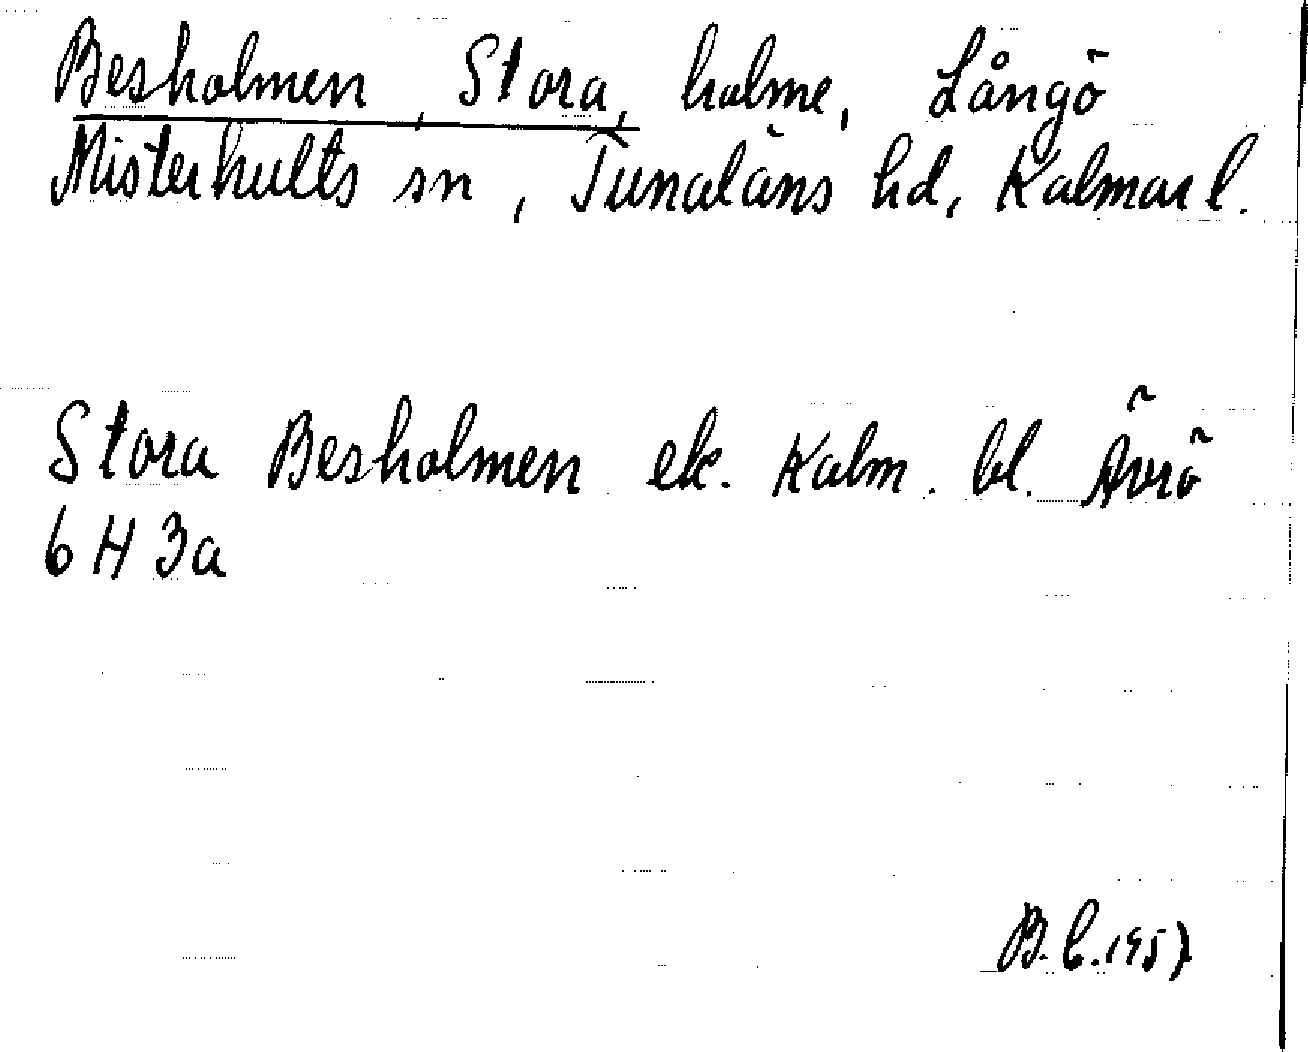 Besholmen, Stora, holme, Långö
Misterhults sn, Tunaläns hd, Kalmar l.
Stora Besholmen ek. Kalm. bl. Ävrö
6 H 3a
B. C. 1957